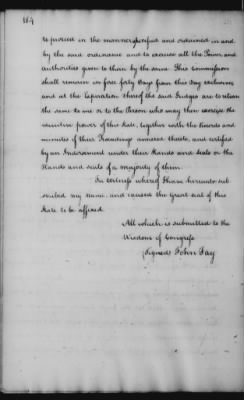 184
to proceed in the manner specified and ordained in and
by the said ordinance and to exercise all the Powers and
authorities given to them by the same. This Commission
shall remain in force forty Days from this Day exclusive
and at the Expiration thereof the said Judges are to return
the same to me or to the Person who may then exercise the
executive power of this State, together with the Records and
minutes of their Proceedings annexed thereto, and certified
by an Indorsement under their Hands and Seals or the
Hands and Seals of a majority of them.
In witness whereof I have hereunto sub
scribed my name and caused the Great Seal of this
State to be affixed.
All which is submitted to the
Wisdom of Congress
(Signed) John Jay